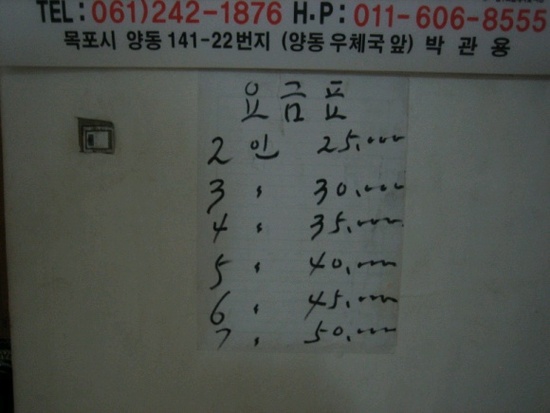 TEL: 061)242-1876 H·P: 011-606-8555
목포시 양동 141-22번지 (양동우체국앞) 박 관 용
요 금 표
2 인 25,000
3 〃 30,000
4 〃 35,000
5 〃 40,000
6 〃 45,000
7 〃 50,000